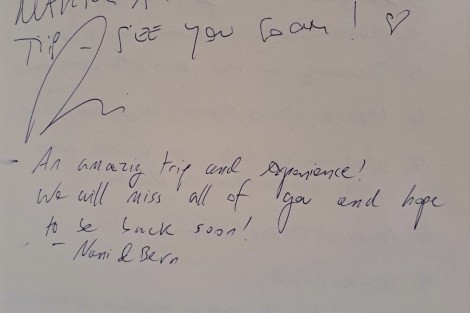 Trip - SEE you soon! ♡
- An amazing trip and experience!
We will miss all of you and hope
to be back soon!
- Nani & Bern